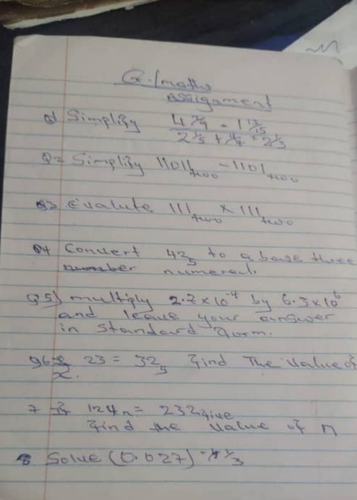 G/maths
Assignment
Q1 Simplify
Q2 Simplify 11011two - 1101two
Q3 Evalute 111two x 111two
Q4 Convert 42₅ to a base three
numeral.
Q5) multiply 2.7x10⁻⁴ by 6.3x10⁶
and leave your answer
in standard form.
23 = 32₅ find The value of
x.
7 If 124n = 232five
find the value of n
8 Solve (0.027)